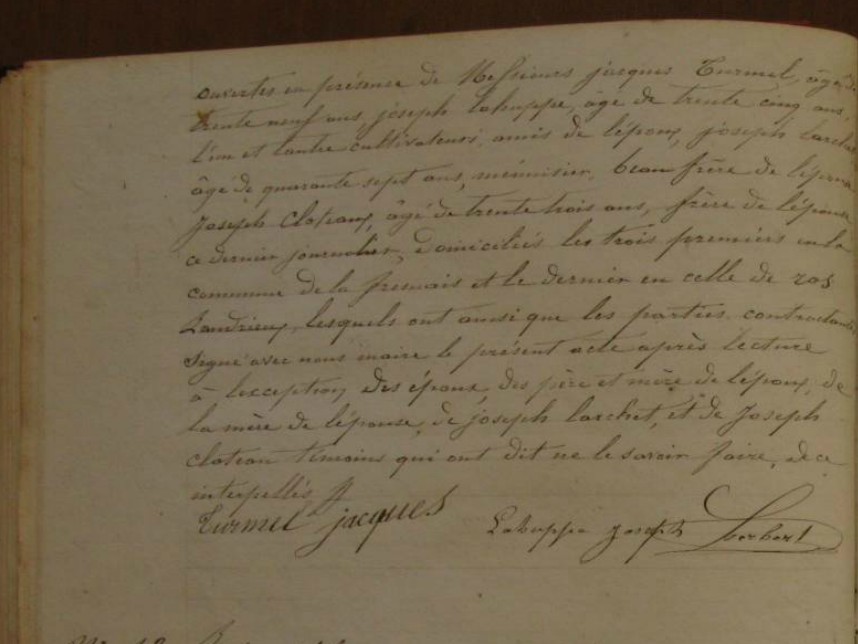 ouvertes en présence de Messieurs jacques Turmel, âgé de
trente neuf ans, joseph Lahuppe, âgé de trente cinq ans,
l'un et l'autre cultivateurs, amis de l'époux, joseph Larchet
âgé de quarante sept ans, menuisier, beau frère de l'épouse
Joseph Cloteaux, âgé de trente trois ans, frère de l'épouse
ce dernier journalier, domiciliés les trois premiers en la
commune de la fresnais et le dernier en celle de ros
Landrieux, lesquels ont ainsi que les parties contractantes
Signé avec nous maire le présent acte après lecture
à l'exception des époux, des père et mère de l'époux, de
la mère de l'épouse, de joseph Larchet, et de Joseph
cloteau témoins qui ont dit ne le savoir faire, de ce
interpellés
Turmel jacques Lahuppe Joseph